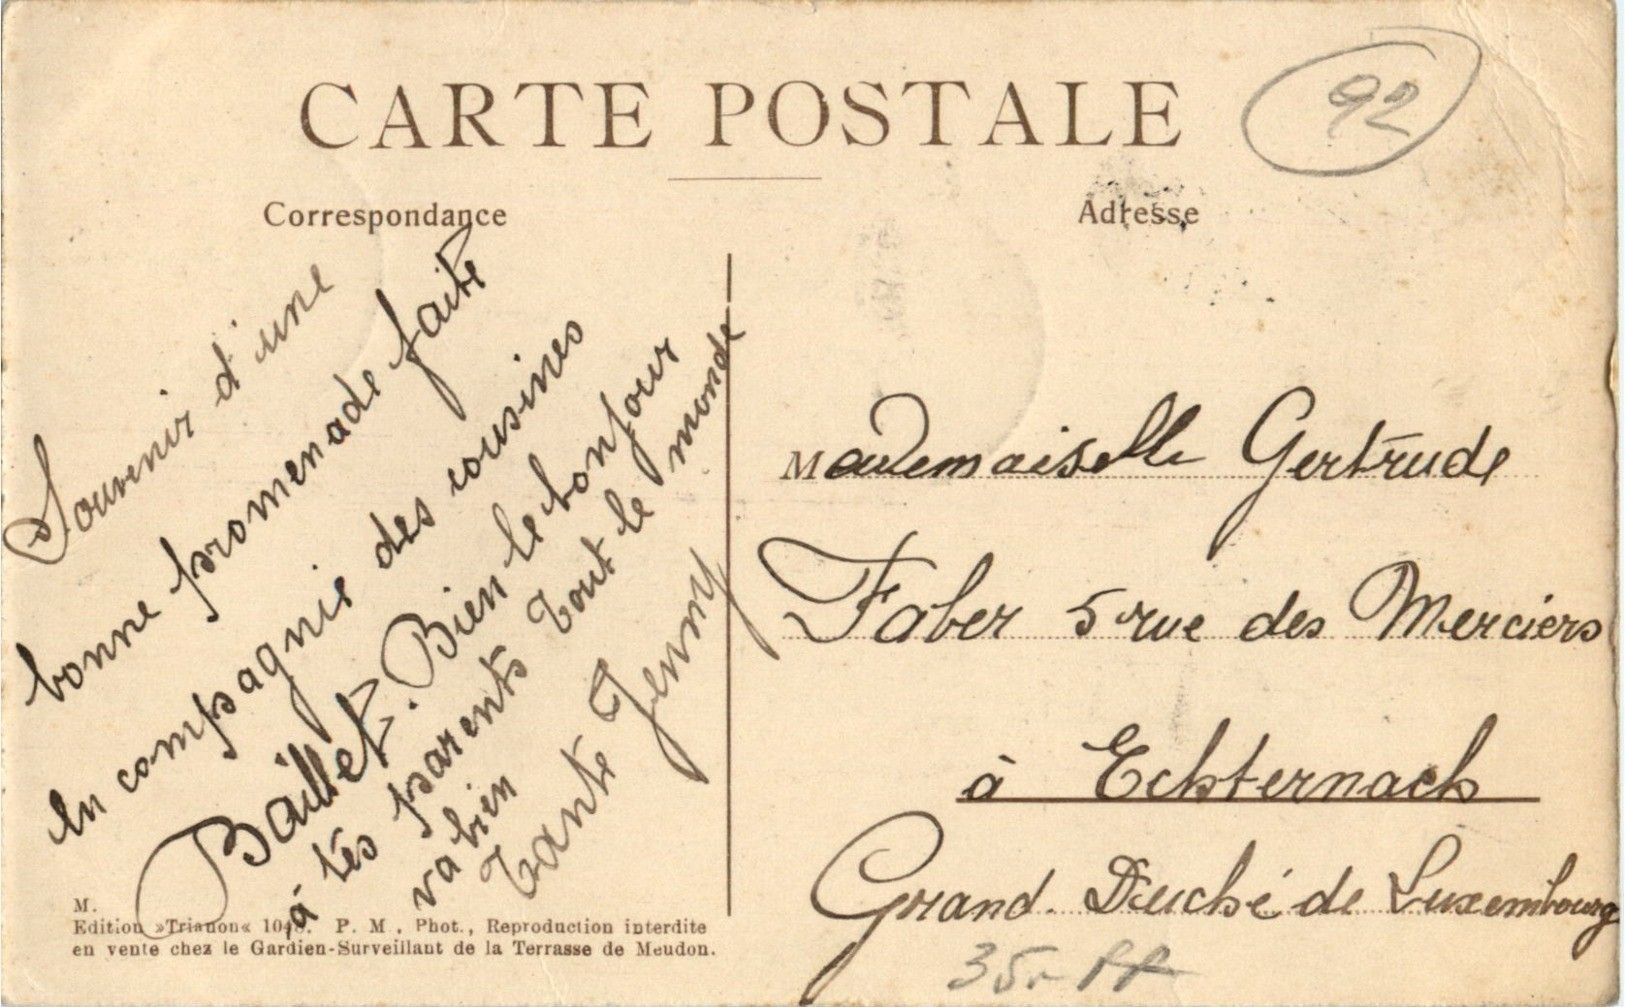 CARTE POSTALE
92
Correspondance
Adresse
Souvenir d'une
bonne promenade faite
en compagnie des cousines
Baillet. Bien le bonjour
à tes parents Tout le monde
va bien
Tante Jenny
Mademaiselle Gertrude
Faber 5 rue des Merciers
à Echternach
Grand. Duché de Luxembourg
M.
Edition »Trianon« 104 . P. M. Phot., Reproduction interdite
en vente chez le Gardien-Surveillant de la Terrasse de Meudon.
35.-